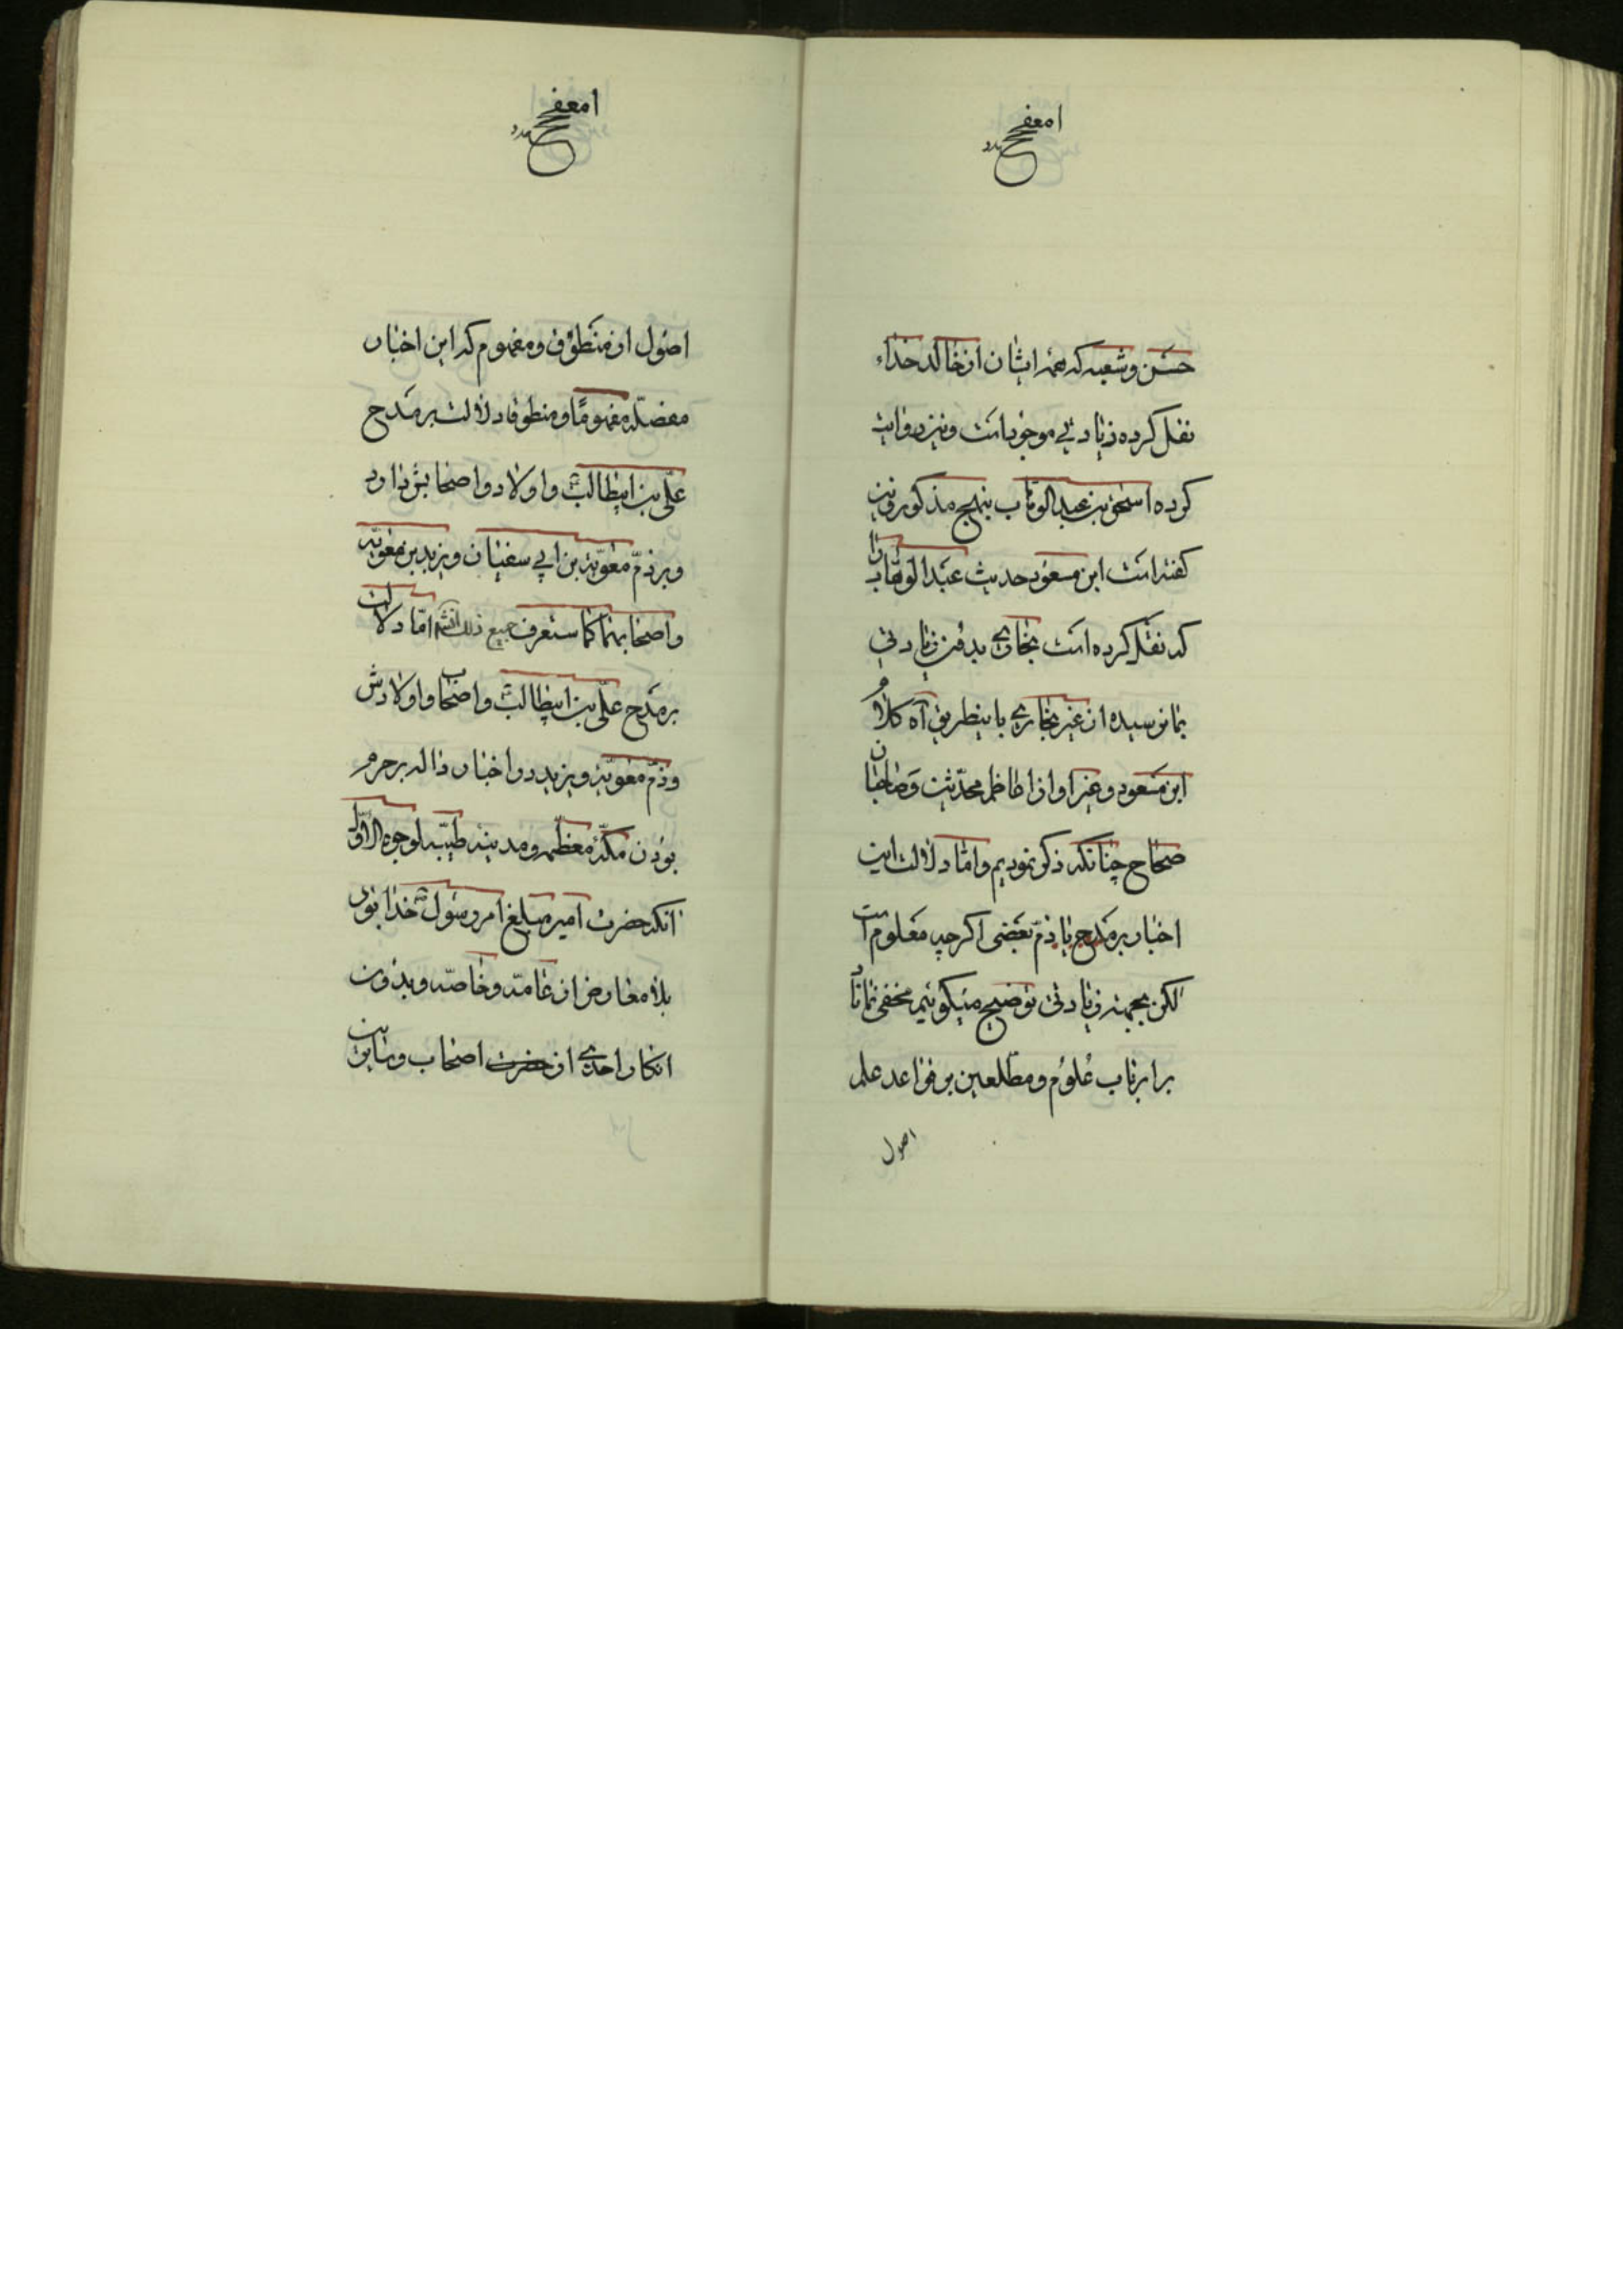 حسن و شعبه که همه ایشان از خالد حذاء
نقل کرده زیادتی موجود است و نیز روایت
کرده اسحق بن عبد الوهاب بنهج مذکور و نیز
گفته است ابن مسعود حدیث عبد الوهاب را
که نقل کرده است بخاری بدون زیادتی
بما رسیده از غیر بخاری باینطریق آه کلام
ابن مسعود و غیر او از اعاظم محدثین و صاحبان
صحاح چنانکه ذکر نمودیم و اما دلالت این
اخبار بر مدح یا ذم بعضی اگر چه معلوم است
لکن بجهة زیادتی توضیح میگوئیم مخفی نماناد
بر ارباب علوم و مطلعین بر قواعد علم
اصول
اصول از منطوق و مفهوم که این اخبار
مفصله مفهوما و منطوقا دلالت بر مدح
علی بن ابیطالب و اولاد و اصحابش دارد
و بر ذم معویة بن ابی سفیان و یزید بن معویه
و اصحابهما کما ستعرف جمیع ذلک انشه اما دلالت
بر مدح علی بن ابیطالب و اصحاب و اولادش
و ذم معویة و یزید در اخبار داله بر حرم
بودن مکهٔ معظمه و مدینه طیبه لوجوه الاول
انکه حضرت امیر مبلغ امر رسول خدا بود
بلا معارض از عامه و خاصه و بدون
انکار احدی از حضرت اصحاب و تابعین